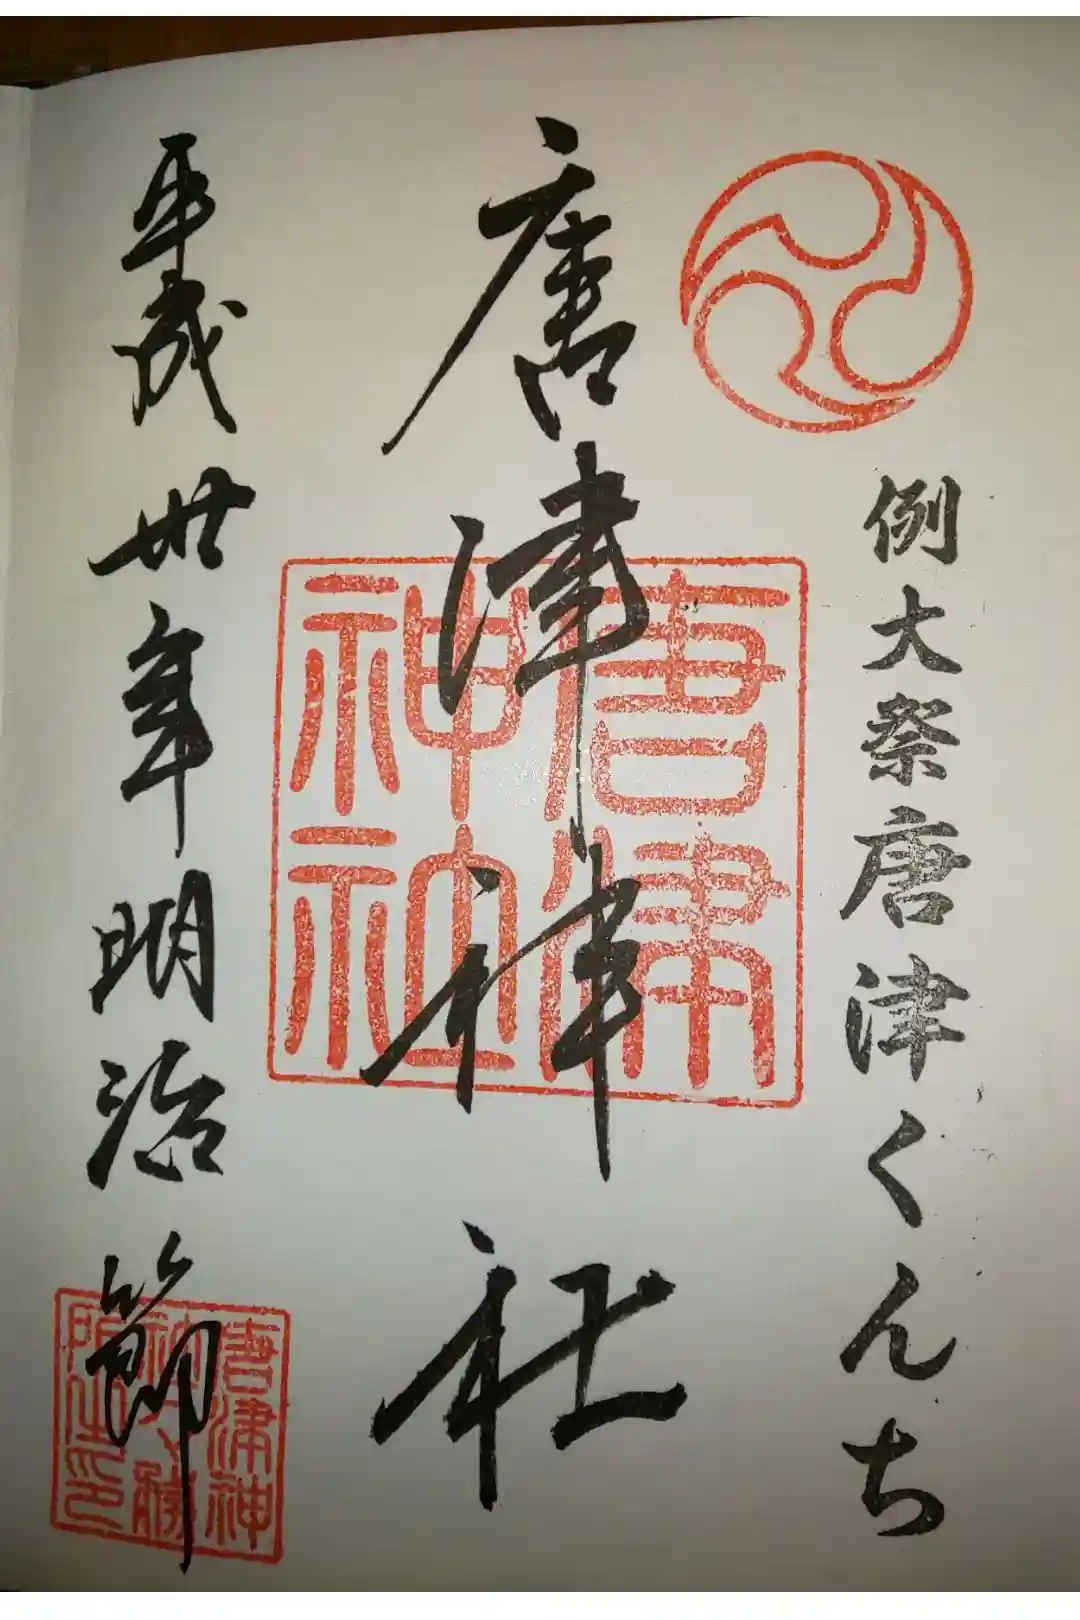 例大祭唐津くんち
唐津神社
唐津神社
平成卅年明治節
唐津神
社々務
所之印